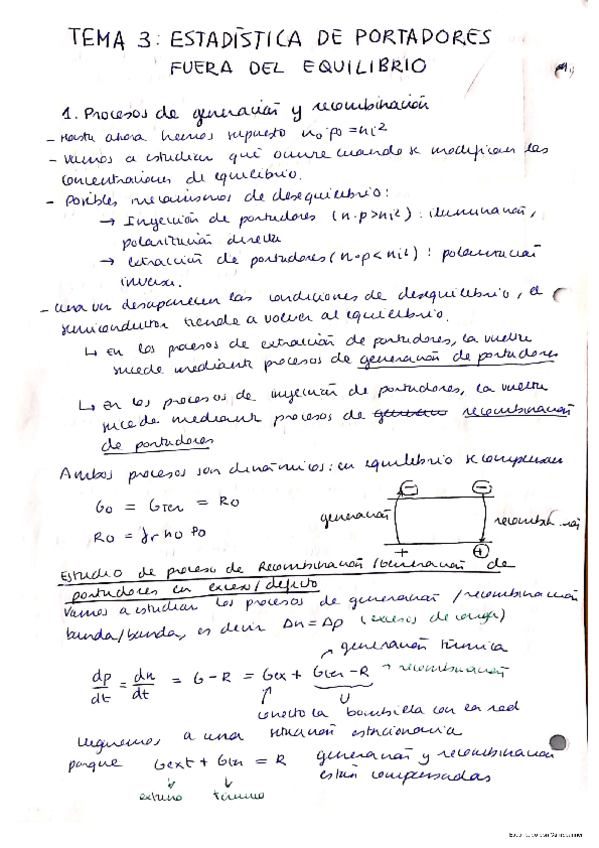 TEMA 3: ESTADÍSTICA DE PORTADORES
FUERA DEL EQUILIBRIO
1. Procesos de generación y recombinación
- Hasta ahora hemos supuesto n₀·p₀ = ni²
- Vamos a estudiar qué ocurre cuando se modifican las
concentraciones de equilibrio.
- Posibles mecanismos de desequilibrio:
→ Inyección de portadores (n·p>ni²): iluminación,
polarización directa
→ extracción de portadores (n·p<ni²): polarización
inversa.
- Una vez desaparecen las condiciones de desequilibrio, el
semiconductor tiende a volver al equilibrio.
↳ En los procesos de extracción de portadores, la vuelta
sucede mediante procesos de generación de portadores
↳ En los procesos de inyección de portadores, la vuelta
sucede mediante procesos de recombinación
de portadores
Ambos procesos son dinámicos: en equilibrio se compensan
G₀ = Gter = R₀
R₀ = γr n₀ p₀
generación
recombinación
- - + +
Estudio de proceso de Recombinación/Generación de
portadores en exceso/defecto
Vamos a estudiar los procesos de generación/recombinación
banda/banda, es decir Δn = Δp (excesos de carga)
generación térmica
dp/dt = dn/dt = G - R = Gex + Gter - R → recombinación
conecto la bombilla con la red
Llegamos a una situación estacionaria
porque Gext + Gter = R generación y recombinación
están compensadas
externo térmico